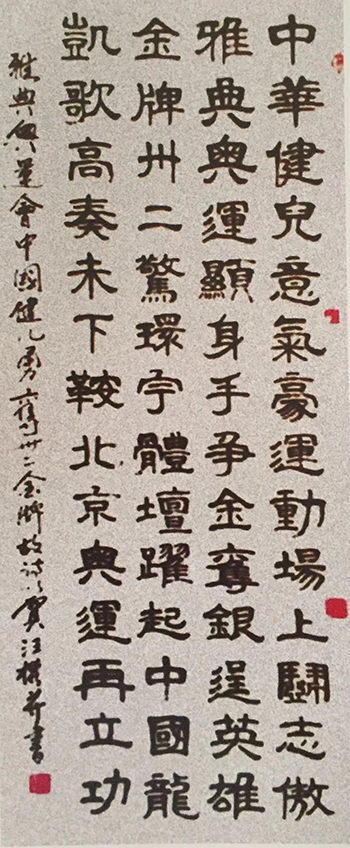 中華健兒意氣豪運動場上鬭志傲
雅典奥運顯身手争金奪銀逞英雄
金牌卅二驚環宇體壇躍起中國龍
凱歌高奏未下鞍北京奥運再立功
雅典奥運會中國健兒勇奪卅二金牌故詩以賀汪書